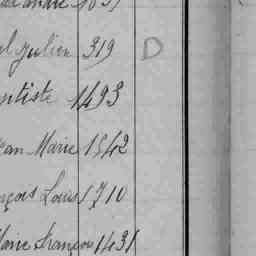 319 D
ptiste 1493
ean Marie 1542
nçois Louis 1710
Marie François 1431